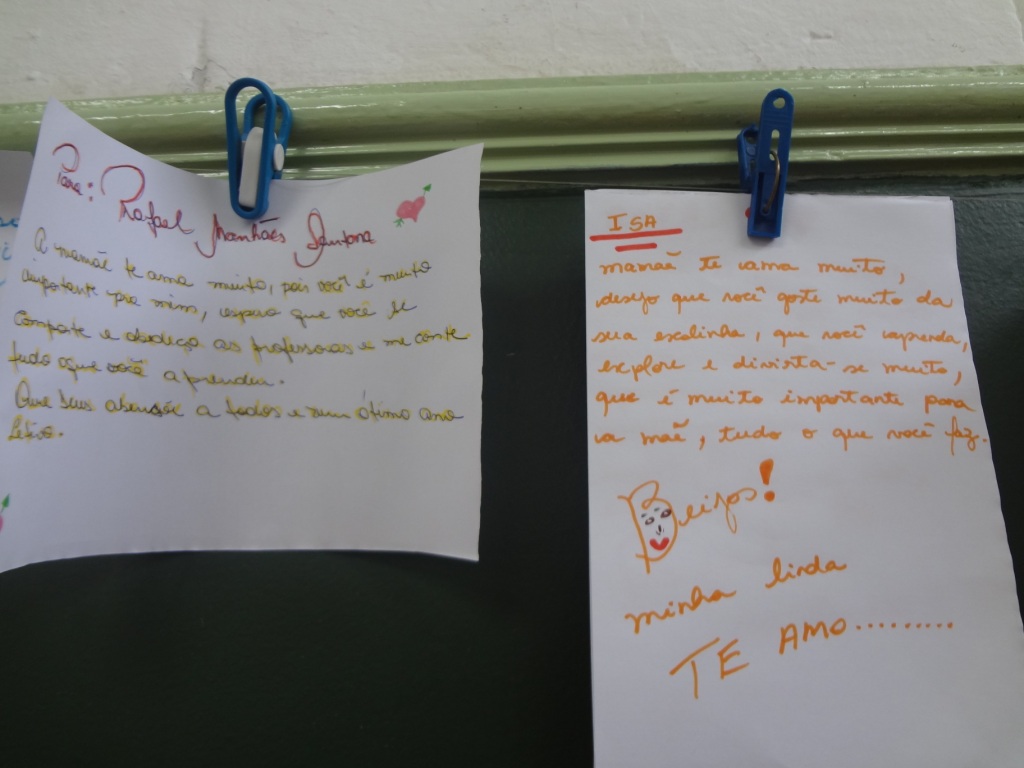 Para: Rafael Manhães Quintana
A mamãe te ama muito, pois você é muito
importante pra mim, espero que você se
comporte e obedeça as professoras e me conte
tudo oque você aprendeu.
Que Deus abençõe a todos e um ótimo ano
letivo.
ISA
mamaẽ te ama muito,
desejo que você goste muito da
sua escolinha, que você aprenda,
explore e divirta-se muito,
que é muito importante para
a maẽ, tudo o que você faz.
Beijos!
minha linda
TE AMO.........